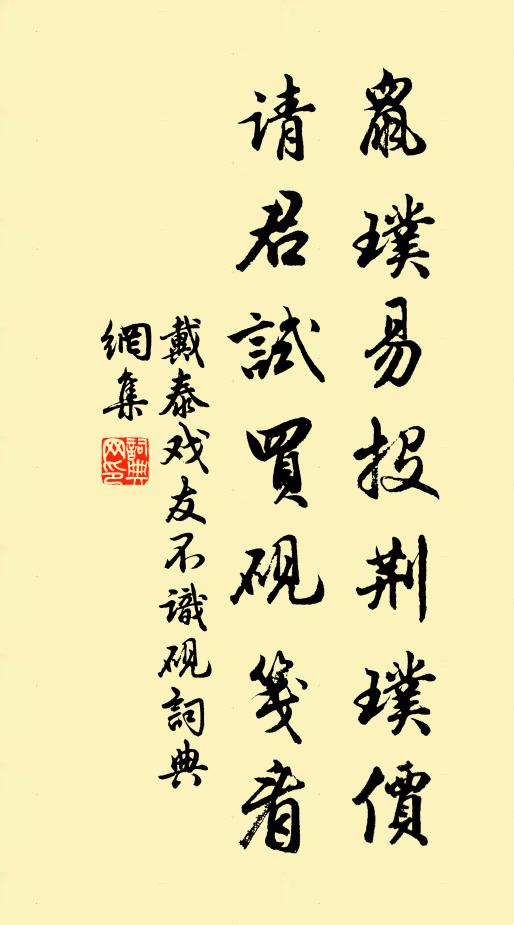 鼠璞易投荆璞價
请君試買硯箋看
戴泰戏友不識硯詞典
網集
詞典
网印